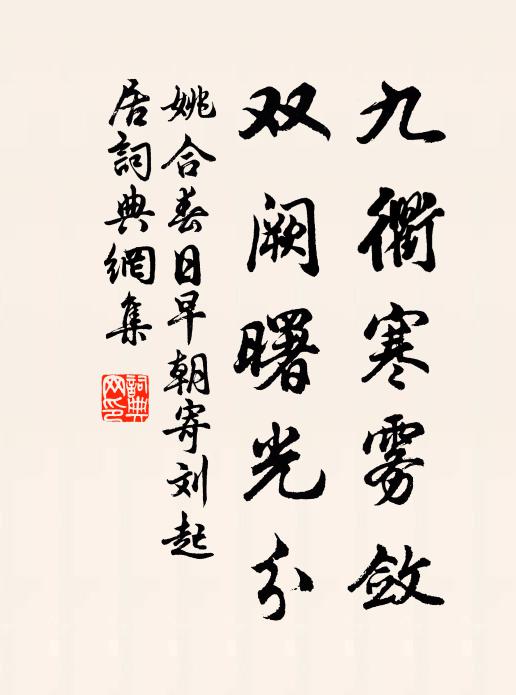 九衢寒雾敛
双阙曙光分
姚合春日早朝寄刘起
居詞典網集
詞典
网印